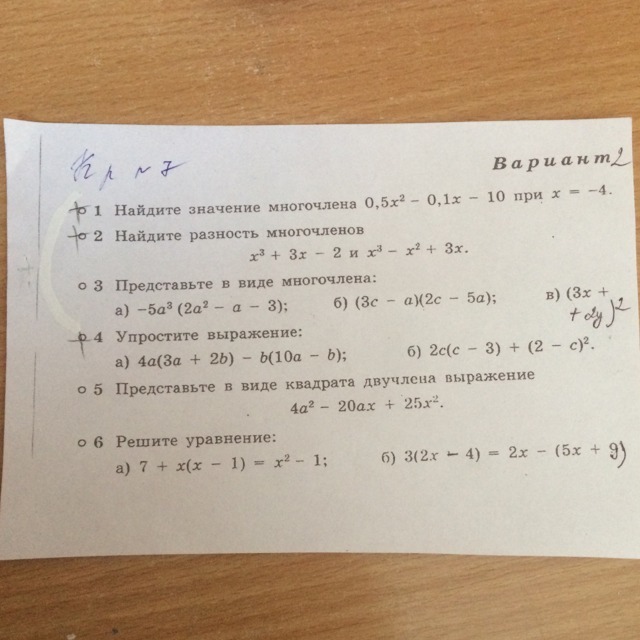 Кр №7
Вариант 2
1 Найдите значение многочлена 0,5x² − 0,1x − 10 при x = −4.
2 Найдите разность многочленов
x³ + 3x − 2 и x³ − x² + 3x.
3 Представьте в виде многочлена:
а) −5a³ (2a² − a − 3); б) (3c − a)(2c − 5a); в) (3x +
+ 2y)²
4 Упростите выражение:
а) 4a(3a + 2b) − b(10a − b); б) 2c(c − 3) + (2 − c)².
5 Представьте в виде квадрата двучлена выражение
4a² − 20ax + 25x².
6 Решите уравнение:
а) 7 + x(x − 1) = x² − 1; б) 3(2x − 4) = 2x − (5x + 9)